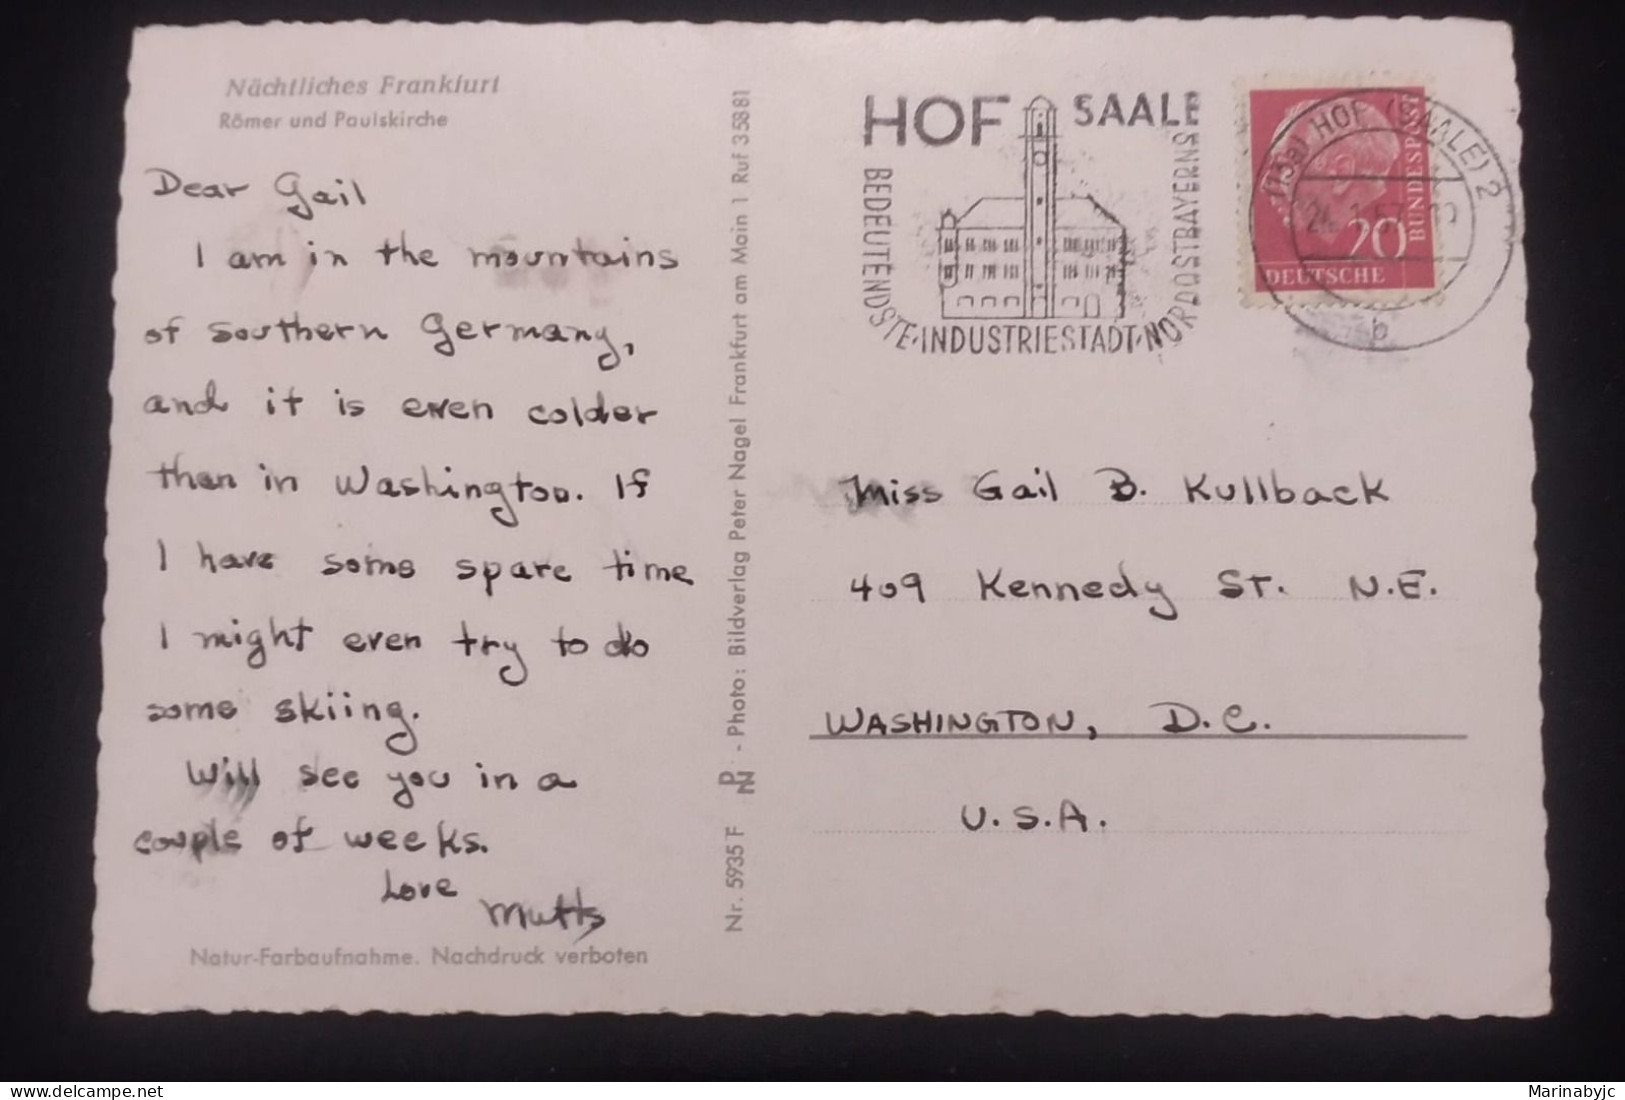 Nächtliches Frankfurt
Römer und Paulskirche
Dear Gail
I am in the mountains
of southern Germany,
and it is even colder
than in Washington. If
I have some spare time
I might even try to do
some skiing.
Will see you in a
couple of weeks.
Love
Mutts
Natur-Farbaufnahme. Nachdruck verboten
Nr. 5935 F
PN - Photo: Bildverlag Peter Nagel Frankfurt am Main 1 Ruf 35881
HOF SAALE
BEDEUTENDSTE·INDUSTRIESTADT·NORDOSTBAYERNS
(13a) HOF (SAALE) 2
b
20
DEUTSCHE
BUNDESPOST
Miss Gail B. Kullback
409 Kennedy St. N.E.
WASHINGTON, D.C.
U.S.A.
Marinabyjc